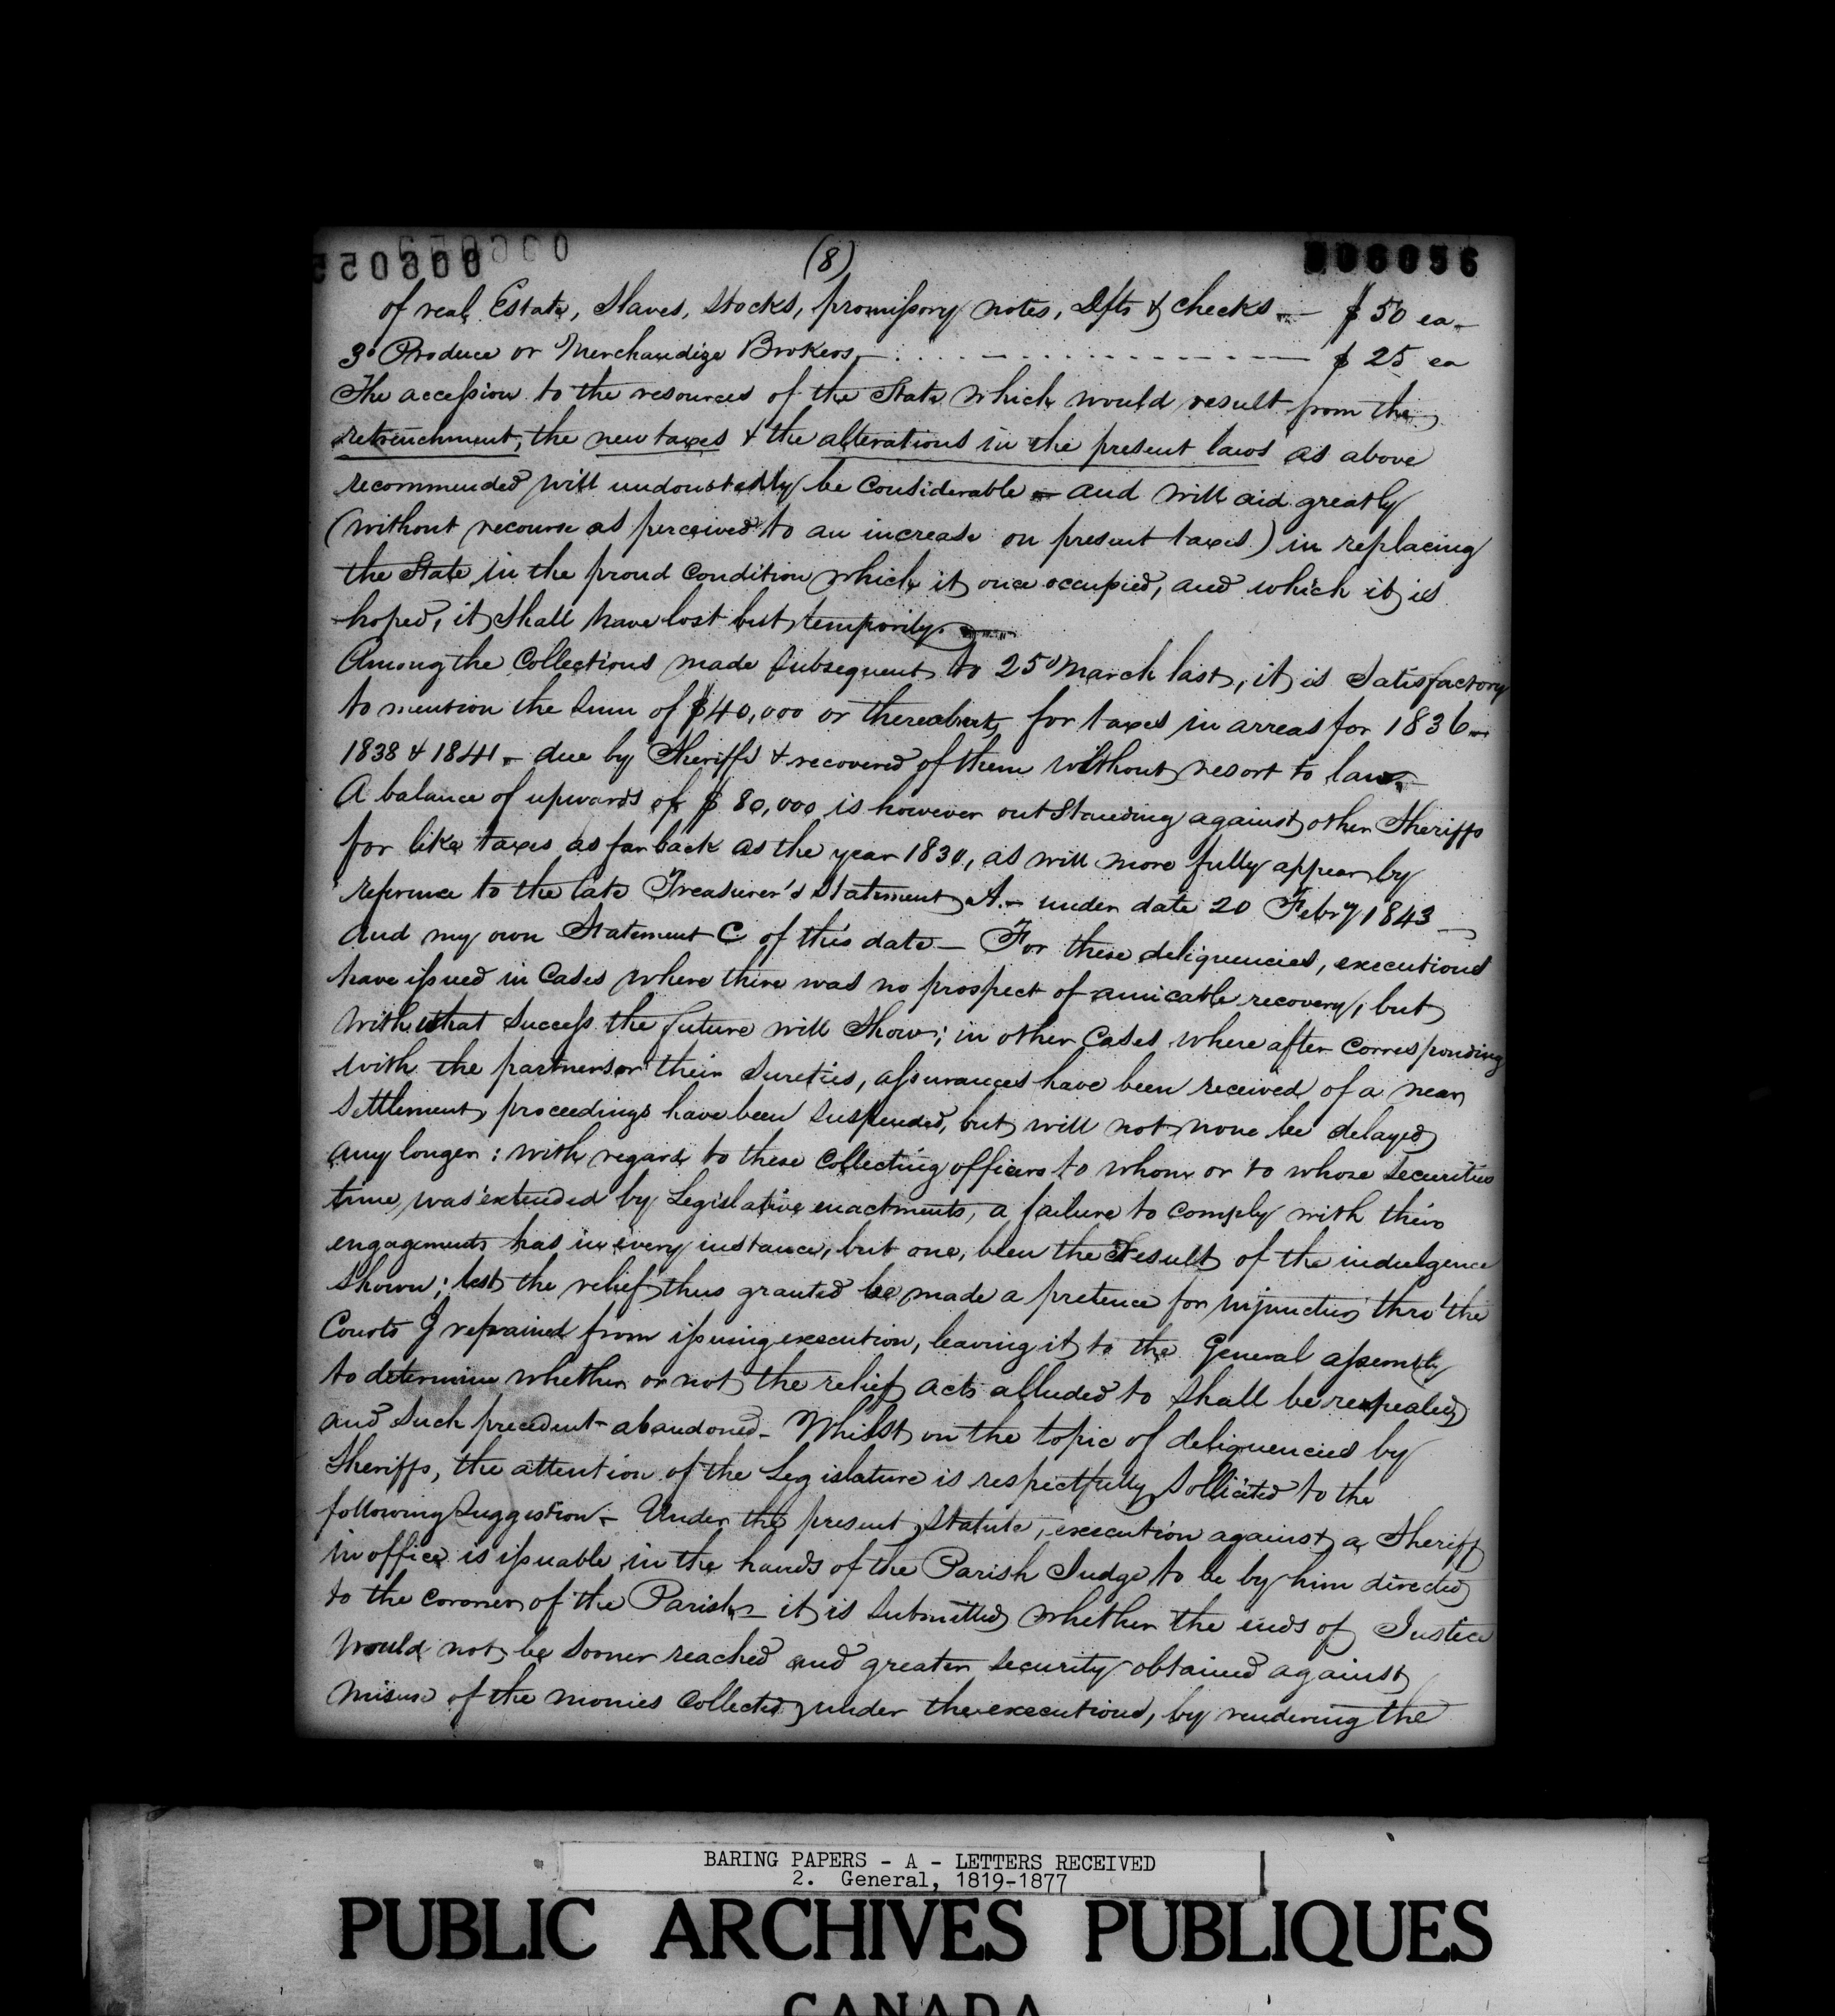 (8)
006056
of real Estate, Slaves, Stocks, promissory notes, Dfts & Checks — $50 ea —
3° Produce or Merchandize Brokers — $25 ea
The accession to the resources of the State which would result from the
retrenchment, the new taxes & the alterations in the present laws as above
recommended will undoubtedly be Considerable and will aid greatly
(without recourse as perceived to an increase on present taxes) in replacing
the State in the proud Condition which it once occupied, and which it is
hoped, it Shall have lost but temporily.
Among the Collections made Subsequent to 25 March last, it is Satisfactory
to mention the Sum of $40,000 or thereabouts for taxes in arreas for 1836 —
1838 & 1841 — due by Sheriffs & recovered of them without resort to law —
A balance of upwards of $80,000 is however outStanding against other Sheriffs
for like taxes as far back as the year 1830, as will more fully appear by
reference to the late Treasurer's Statement A. — under date 20 Febry 1843 —
And my own Statement C of this date — For these deliquencies, executions
have issued in Cases where there was no prospect of amicable recovery, but
with what Success the future will Show; in other Cases where after Corresponding
with the partners or their Sureties, assurances have been received of a near
Settlement, proceedings have been Suspended, but will not none be delayed
any longer: with regard to these Collecting officers to whom or to whose Securities
time was extended by Legislative enactments, a failure to Comply with their
engagements has in every instance, but one, been the Result of the indulgence
Shown; lest the relief thus granted be made a pretence for injunction thro' the
Courts I refrained from issuing execution, leaving it to the General assembly
to determine whether or not the relief acts alluded to Shall be repealed
and Such precedent abandoned — Whilst on the topic of deliquencies by
Sheriffs, the attention of the Legislature is respectfully Sollicited to the
following Suggestion — Under the present Statute, execution against a Sheriff
in office is issuable in the hands of the Parish Judge to be by him directed
to the Coroner of the Parish — it is Submitted whether the ends of Justice
Would not be Sooner reached and greater Security obtained against
Misuse of the monies Collected under the executions, by rendering the
BARING PAPERS - A - LETTERS RECEIVED
2. General, 1819-1877
PUBLIC ARCHIVES PUBLIQUES
CANADA